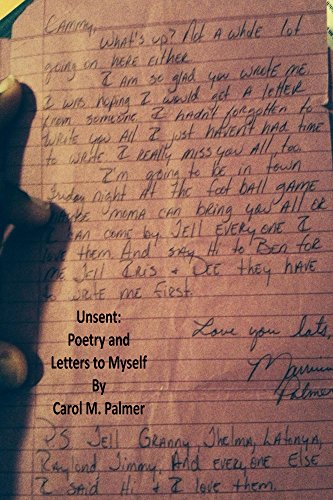 Cammy,
What's up? Not a whole lot
going on here either.
I am so glad you wrote me
I was hoping I would get a letter
from someone. I hadn't forgotten to
write you all I just haven't had time
to write. I really miss you all too.
I'm going to be in town
Friday night at the football game
maybe moma can bring you all or
I can come by. Tell everyone I
love them. And say Hi to Ben for
me Tell Iris & Dee they have
to write me first.
Love you lots,
Palmer
P.S Tell Granny, Thelma, Latonya,
Raylond Jimmy, And everyone Else
I said Hi & I love them.
Unsent:
Poetry and
Letters to Myself
By
Carol M. Palmer